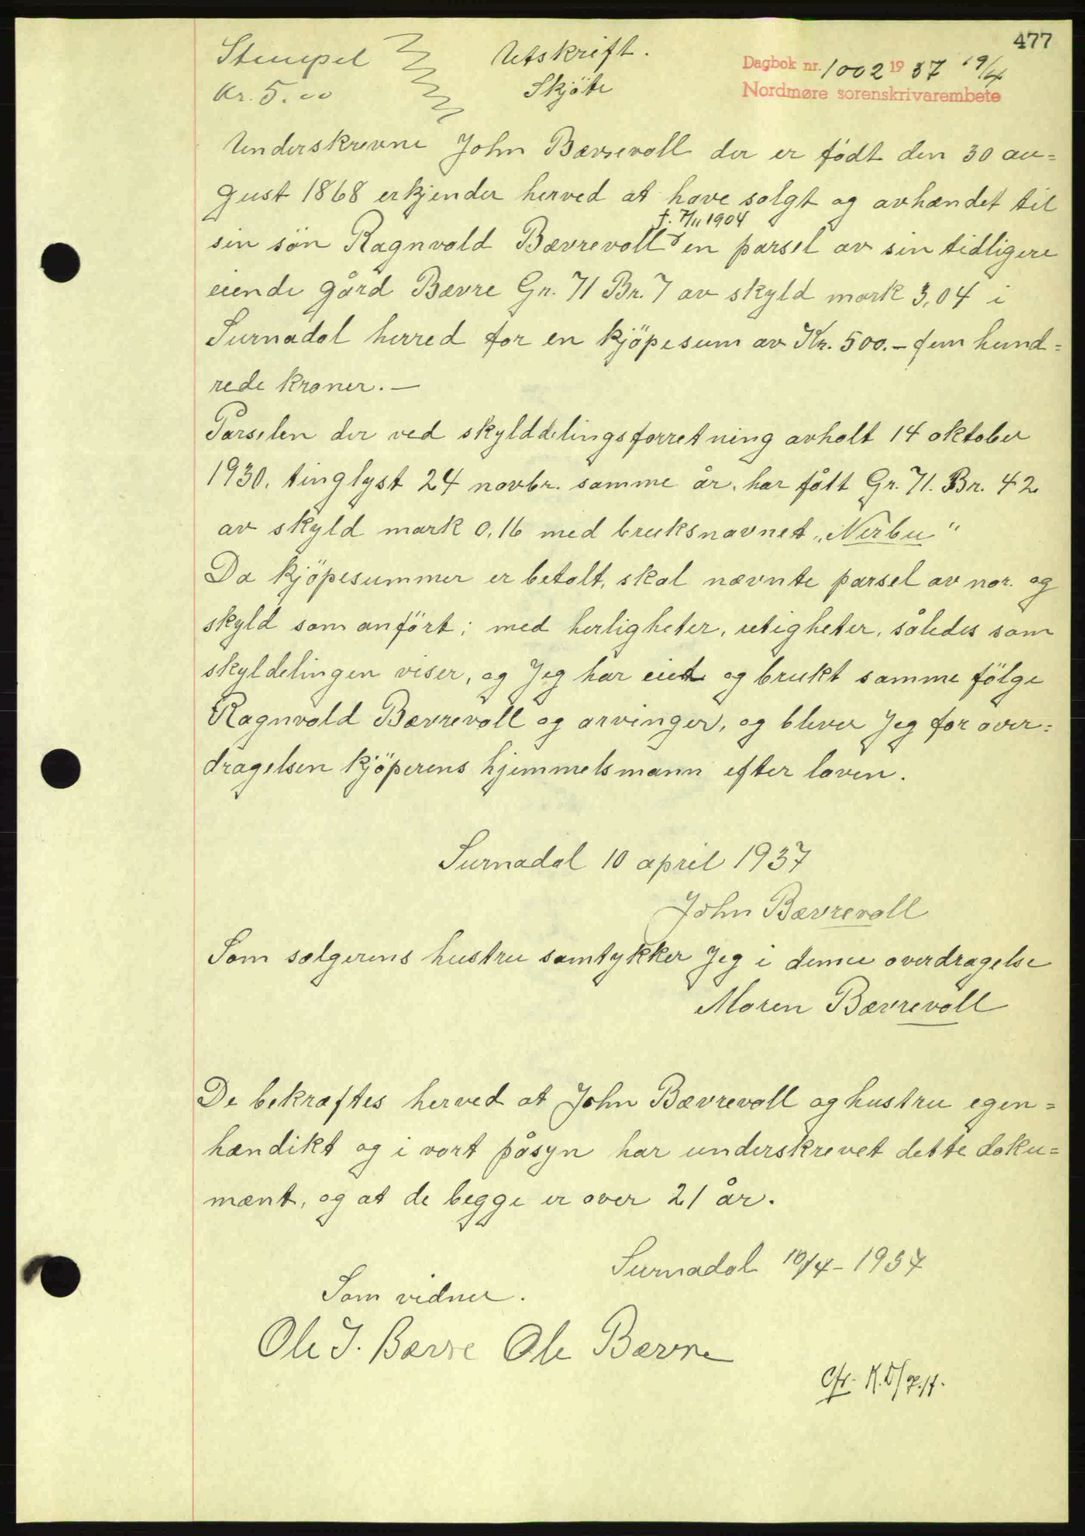 477
Stempel
Kr. 5.00
Utskrift.
Skjöte
Dagbok nr. 1002 1937 19/4
Nordmøre sorenskrivarembete
Underskrevne John Bævrevoll der er født den 30 au=
gust 1868 erkjender herved at have solgt og avhændet til
f. 7/11 1904
sin søn Ragnvald Bævrevoll en parsel av sin tidligere
eiende gård Bævre Gr. 71 Br. 7 av skyld mark 3,04 i
Surnadal herred for en kjöpesum av Kr. 500.- fem hund=
rede kroner.-
Parselen der ved skylddelingsforretning avholt 14 oktober
1930, tinglyst 24 novbr. samme år, har fått Gr. 71. Br. 42
av skyld mark 0,16 med bruksnavnet „Nerbu"
Da kjöpesummer er betalt, skal nævnte parsel av nor. og
skyld som anført; med herligheter, utigheter, således som
skyldelingen viser, og Jeg har eiet og brukt samme fölge
Ragnvald Bævrevoll og arvinger, og bliver Jeg for over=
dragelsen kjöperens hjemmelsmann efter loven.
Surnadal 10 april 1937
John Bævrevoll
Som sælgerens hustru samtykker Jeg i denne overdragelse
Maren Bævrevoll
De bekræftes herved at John Bævrevoll og hustru egen=
hændikt og i vort påsyn har underskrevet dette doku=
mænt, og at de begge er over 21 år.
Surnadal 10/4 - 1937
Som vidner.
Ole J. Bævre Ole Bævre
Cfr.